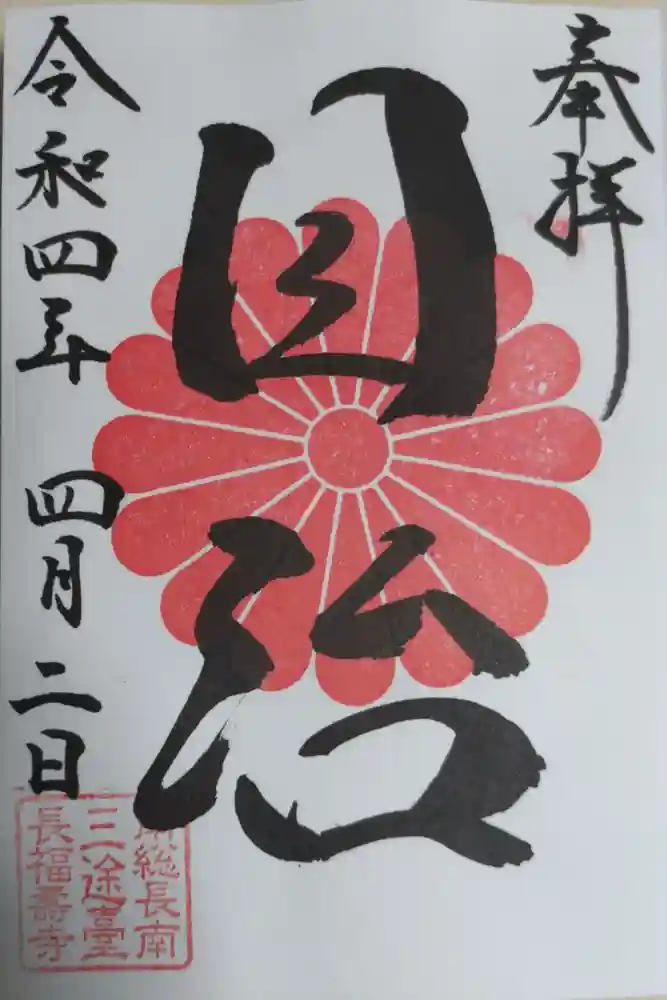 奉拝
治
令和四年 四月 二日
南総長南
三途臺
長福壽寺